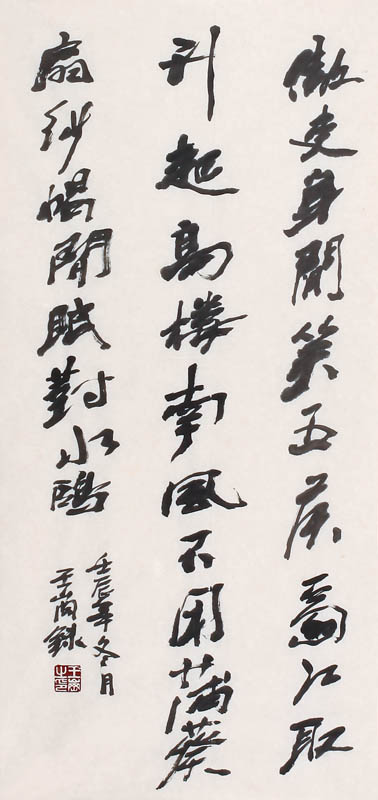 傲吏身閒笑五侯西江取
竹起高樓南風不用蒲葵
扇紗帽閒眠對水鷗
壬辰年冬月